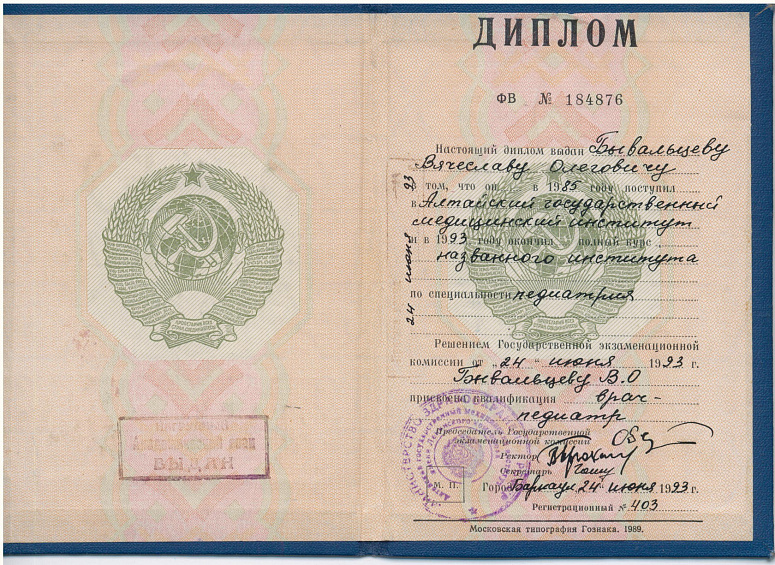 ДИПЛОМ
ФВ № 184876
Настоящий диплом выдан Бывальцеву
Вячеславу Олеговичу
в том, что он в 1985 году поступил
в Алтайский государственный
медицинский институт
и в 1993 году окончил полный курс
названного института
по специальности педиатрия
Решением Государственной экзаменационной
комиссии от „24“ июня 1993 г.
Бывальцеву В.О
присвоена квалификация врач-
педиатр
Председатель Государственной
экзаменационной комиссии
Ректор
Секретарь
М. П. Город Барнаул 24 июня 1993 г.
Регистрационный № 403
Московская типография Гознака. 1989.
24 июня 93
ВЫДАН